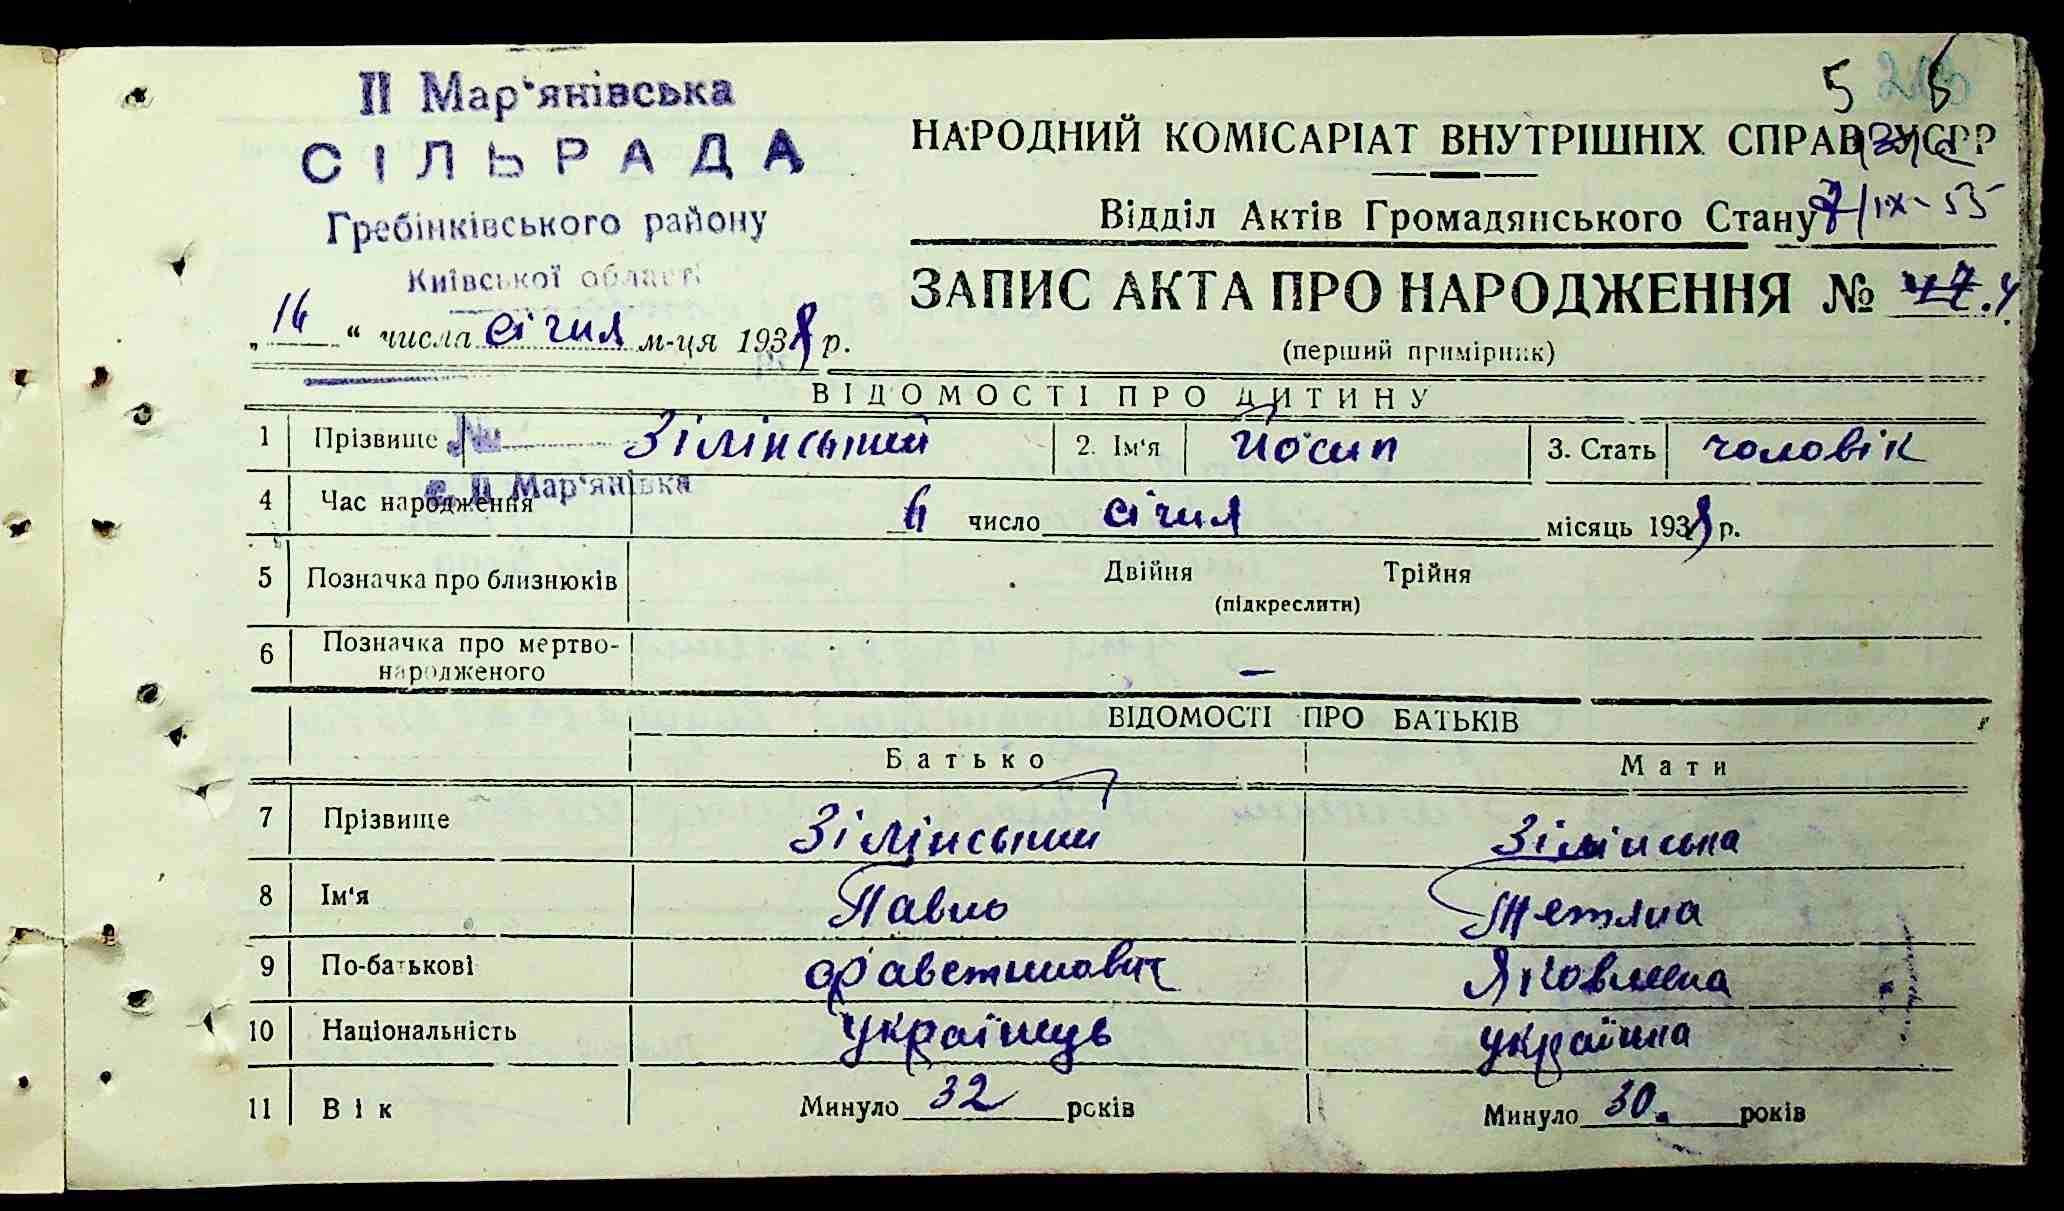 ІІ Мар'янівська
СІЛЬРАДА
Гребінківського району
Київської області
5 6
НАРОДНИЙ КОМІСАРІАТ ВНУТРІШНІХ СПРАВ УСРР
Відділ Актів Громадянського Стану
7/ІХ-55
ЗАПИС АКТА ПРО НАРОДЖЕННЯ №
(перший примірник)
„ 16 “ числа січня м-ця 1938 р.
ВІДОМОСТІ ПРО ДИТИНУ
1 Прізвище Зілінський 2. Ім'я Йосип 3. Стать чоловік
с. ІІ Мар'янівка
4 Час народження 6 число січня місяць 1938 р.
5 Позначка про близнюків Двійня Трійня
(підкреслити)
6 Позначка про мертво-
народженого —
ВІДОМОСТІ ПРО БАТЬКІВ
Батько Мати
7 Прізвище Зілінський Зілінська
8 Ім'я Павло Тетяна
9 По-батькові Фавстинович Яковлевна
10 Національність українець українка
11 Вік Минуло 32 років Минуло 30 років